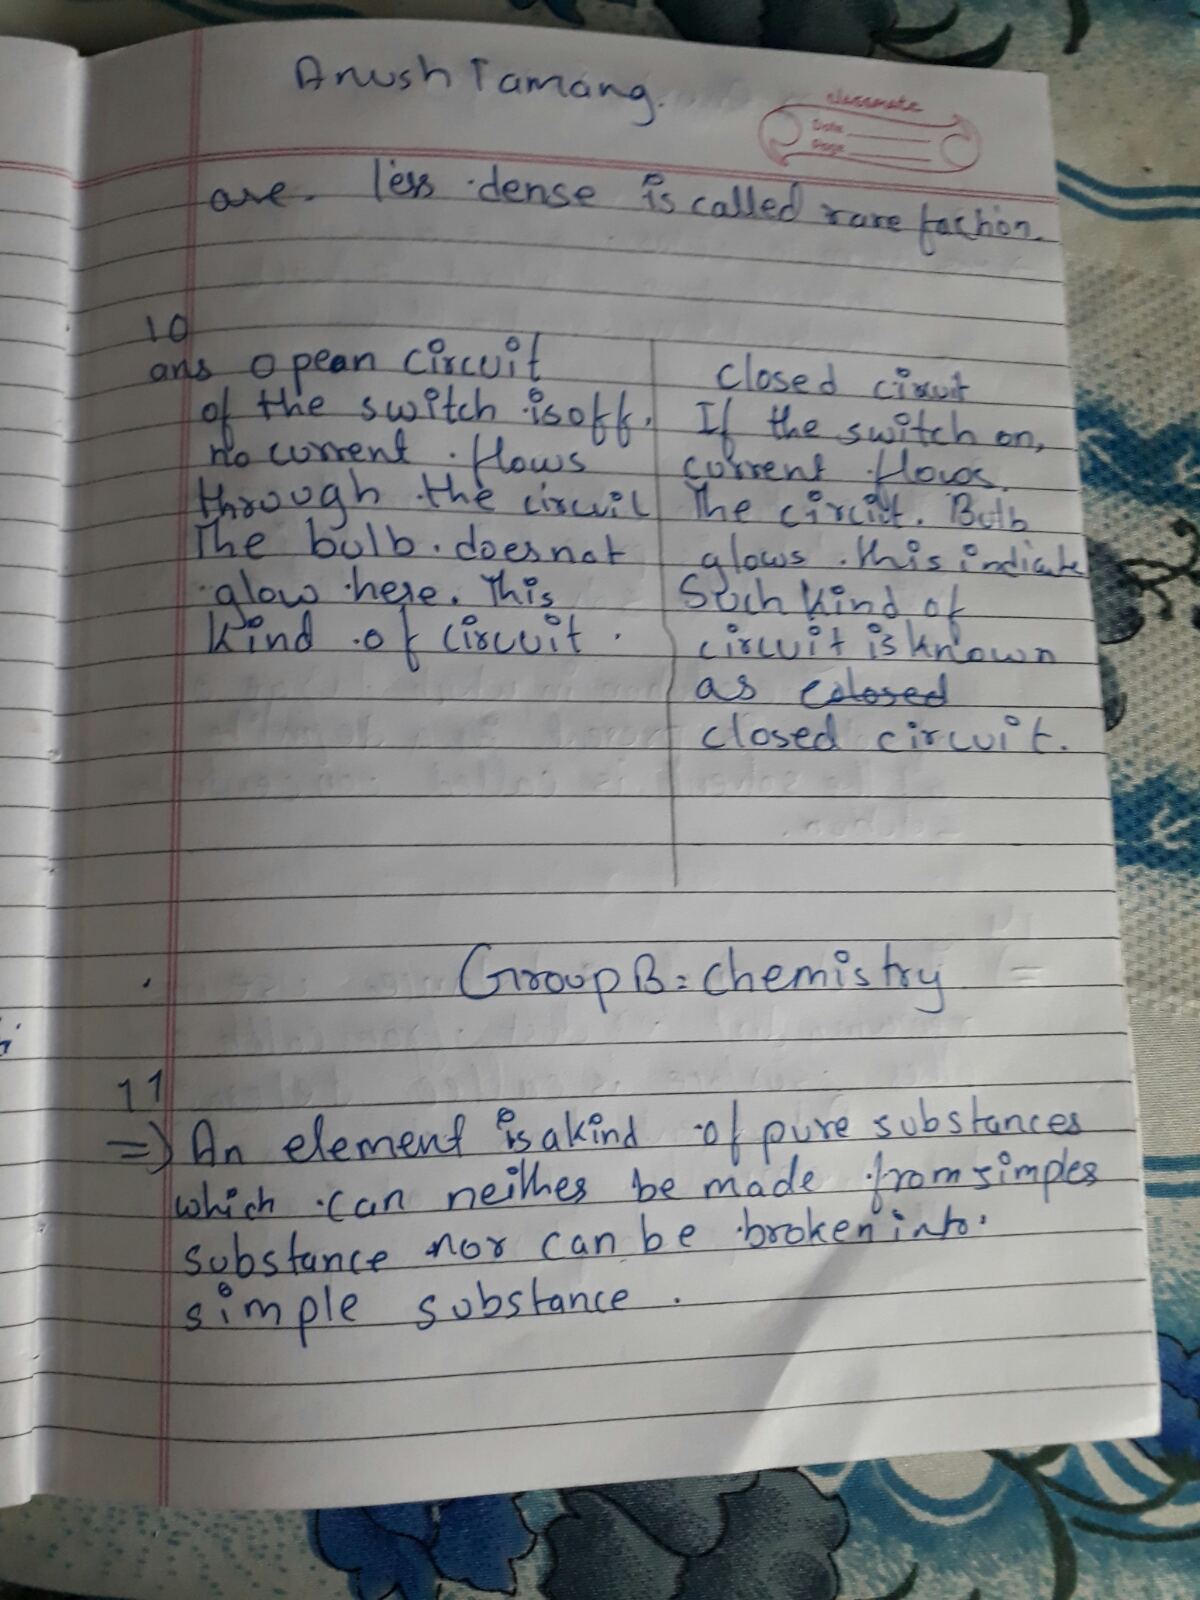 Anush Tamang.
classmate
Date
Page
are. less dense is called rare faction.
10
ans opean circuit
of the switch is off.
no current flows
through the circuit
The bulb does not
glow here. This
kind of circuit.
closed ciruit
If the switch on,
current flows.
The circuit. Bulb
glows this indicate
Such kind of
circuit is known
as colosed
closed circuit.
Group B = chemistry
11
=) An element is a kind of pure substances
which can neither be made from simples
substance nor can be broken into
simple substance.